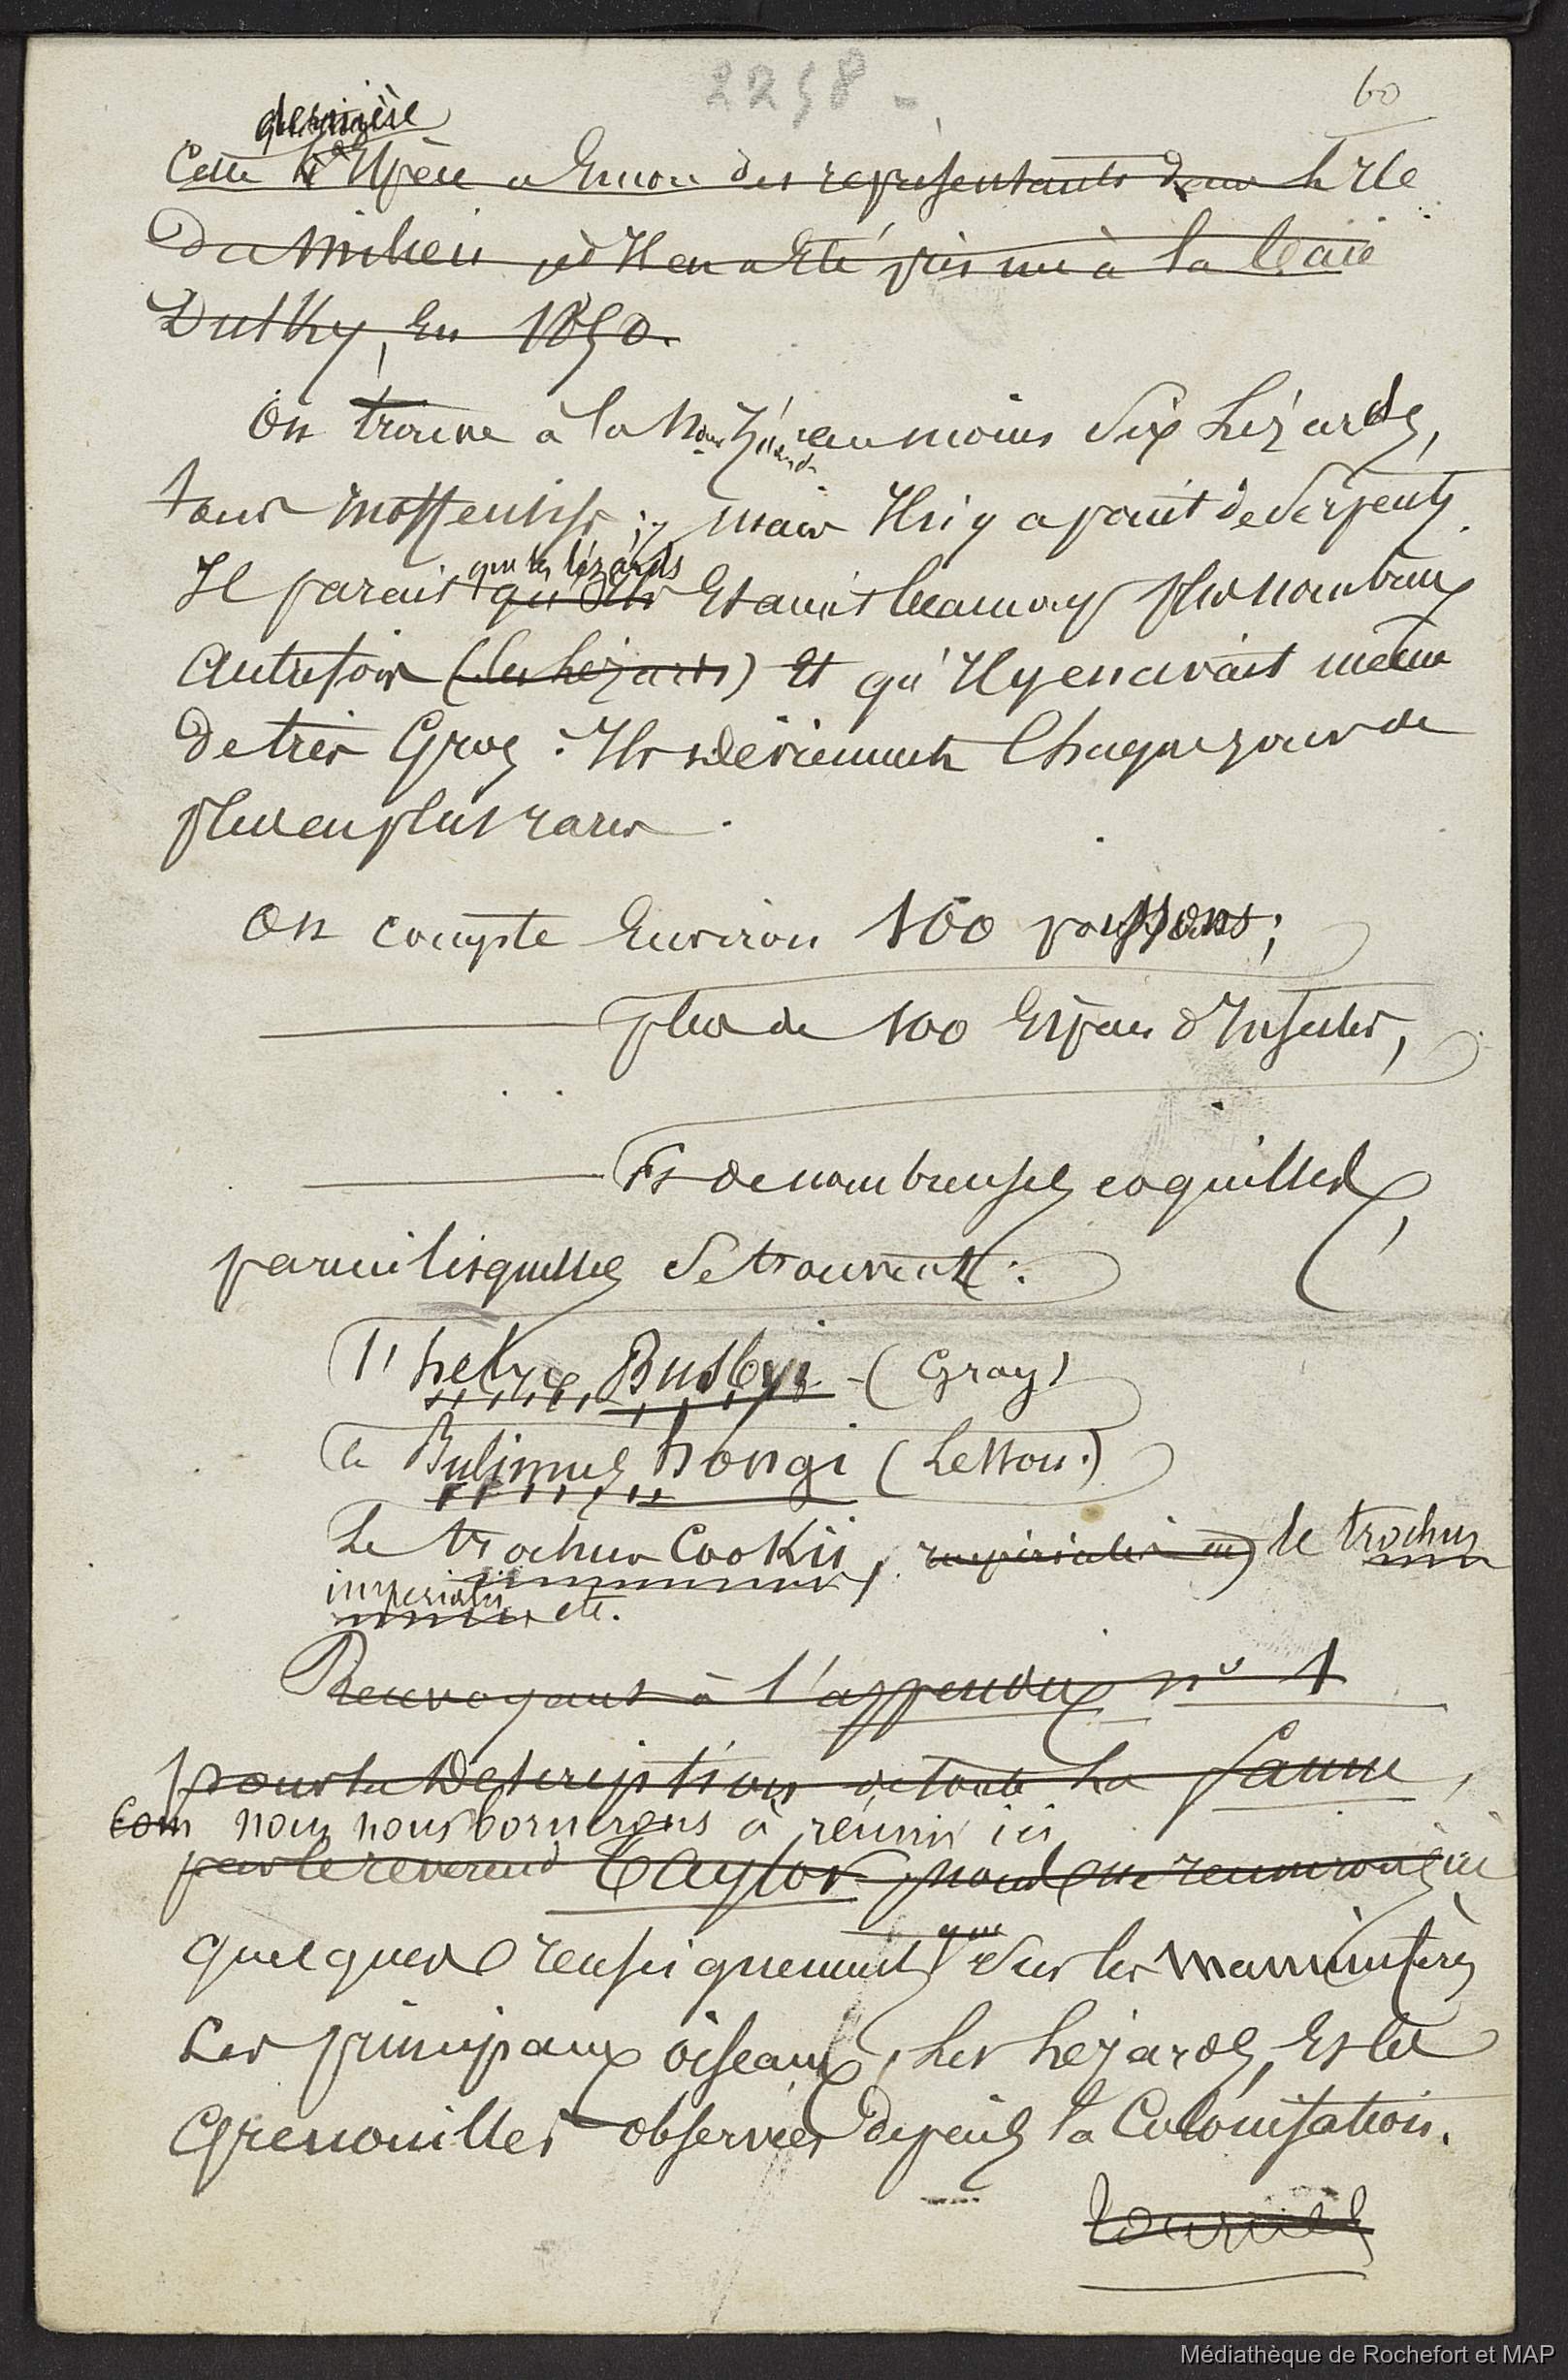 2258 -
60
dernière
Cette Espèce a Encore des représentants dans L'Ile
Du Milieu et Il en a Eté pris un à la Baie
Dusky, En 1850.
On trouve à la Nouv Zélande au moins Six Lézards,
tous inoffensifs ; mais Il n'y a point de Serpents.
que les lézards
Il parait qu'Ils Etaient beaucoup plus nombreux
Autrefois (les Lézards) Et qu'Il y en avait même
De très Gros : Ils deviennent Chaque jour de
plus en plus rares.
On compte Environ 100 poissons ;
plus de 100 Espèces d'Insectes,
Et de nombreuses coquilles,
parmi lesquelles Se trouvent :
l'helix Busbyi - (Gray)
le Bulimus hongi (Lesson.)
Le trochus Cookii, imperialis le trochus
imperialis etc.
Renvoyant à l'appendix n° 1
pour la Description de toute La faune,
nous nous bornerons à réunir ici
par le reverend Taylor, nous ne reunirons ici
que
quelques renseignements Sur les Mammifères
Les principaux oiseaux, Les Lézards, Et les
Grenouilles observées depuis la Colonisation.
Médiathèque de Rochefort et MAP